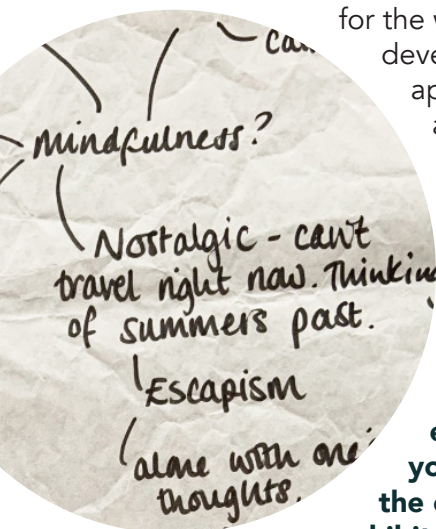 for the
deve
ap
mindfulness?
Nostalgic - can't
travel right now. Thinking
of summers past.
Escapism
alone with one's
thoughts.
yo
the